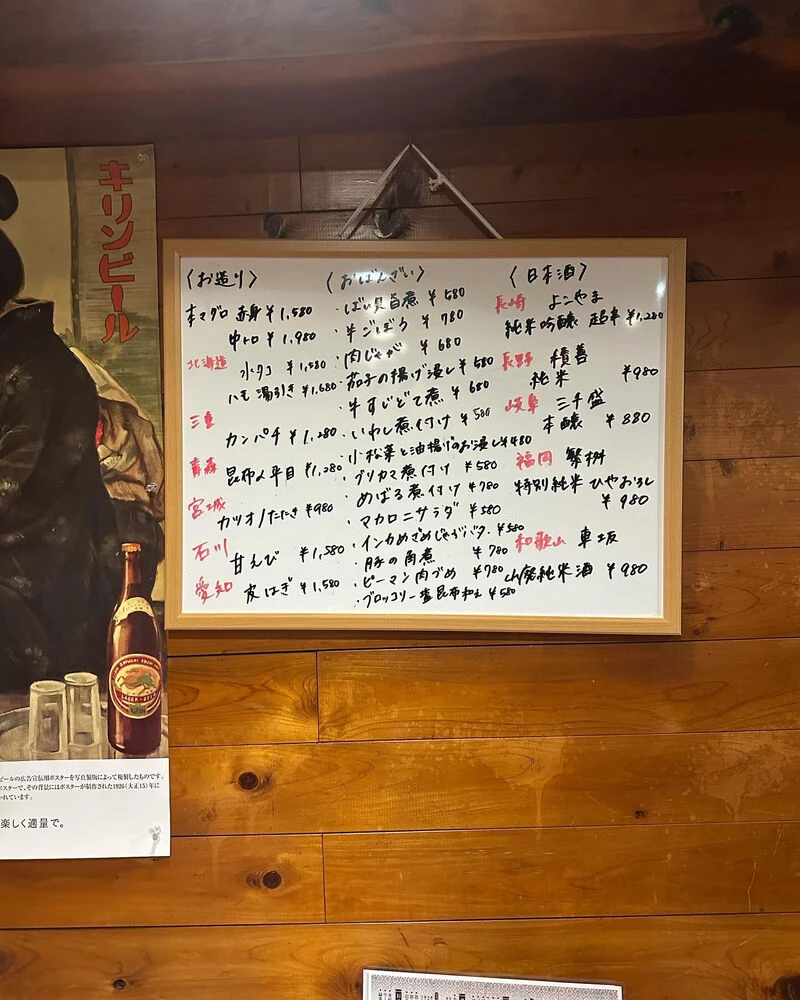 キリンビール
〈お造り〉
本マグロ 赤身 ¥1,580
中トロ ¥1,980
北海道
水タコ ¥1,580
ハモ 湯引き ¥1,680
三重
カンパチ ¥1,280
青森
昆布〆平目 ¥1,280
宮城
カツオ/たたき ¥980
石川
甘えび ¥1,580
愛知
皮はぎ ¥1,580
〈おばんざい〉
・ばい貝旨煮 ¥580
・牛ごぼう ¥780
・肉じゃが ¥680
・茄子の揚げ浸し ¥580
・牛すじどて煮 ¥680
・いわし煮付け ¥580
・小松菜と油揚げのお浸し ¥480
・ブリカマ煮付け ¥580
・めばる煮付け ¥780
・マカロニサラダ ¥580
・インカめざめじゃがバター ¥580
・豚の角煮 ¥780
・ピーマン肉づめ ¥780
・ブロッコリー塩昆布和え ¥580
〈日本酒〉
長崎 よこやま
純米吟醸 超辛 ¥1,280
長野 積善
純米 ¥980
岐阜 三千盛
本醸 ¥880
福岡 繁桝
特別純米 ひやおろし
¥980
和歌山 車坂
山廃純米酒 ¥980
LAGER-BEER
ビールの広告宣伝用ポスターを写真製版によって複製したものです。
ポスターで、その背景にはポスターが制作された1926(大正15)年に
かれています。
楽しく適量で。